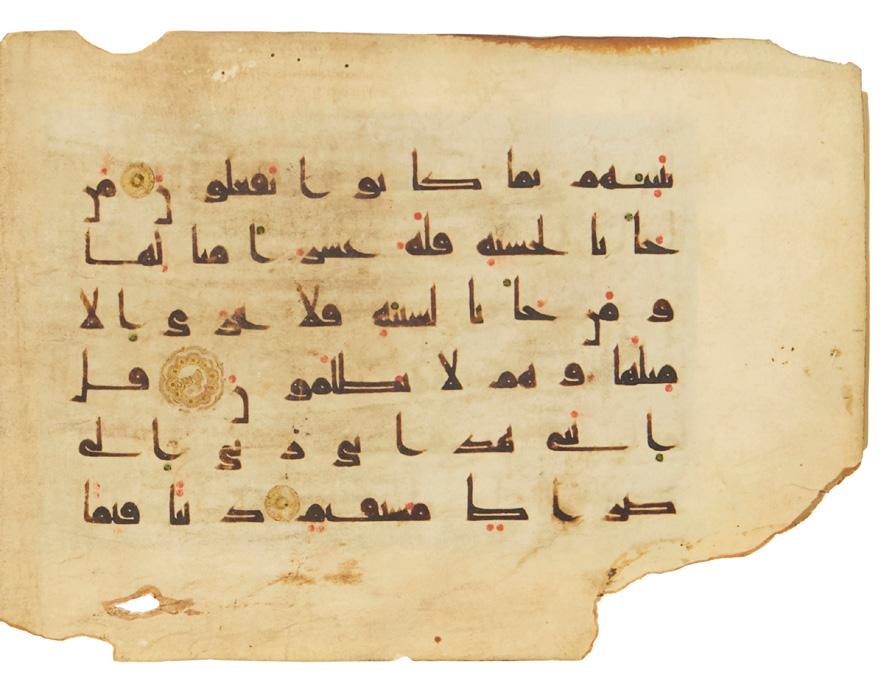 ينبئهم بما كانوا يفعلون من
جا بالحسنه فله عشر امثالها
و من جا بالسيئه فلا يجزى الا
مثلها و هم لا يظلمون قل
انني هداني ربي الى
صراط مستقيم دينا قيما